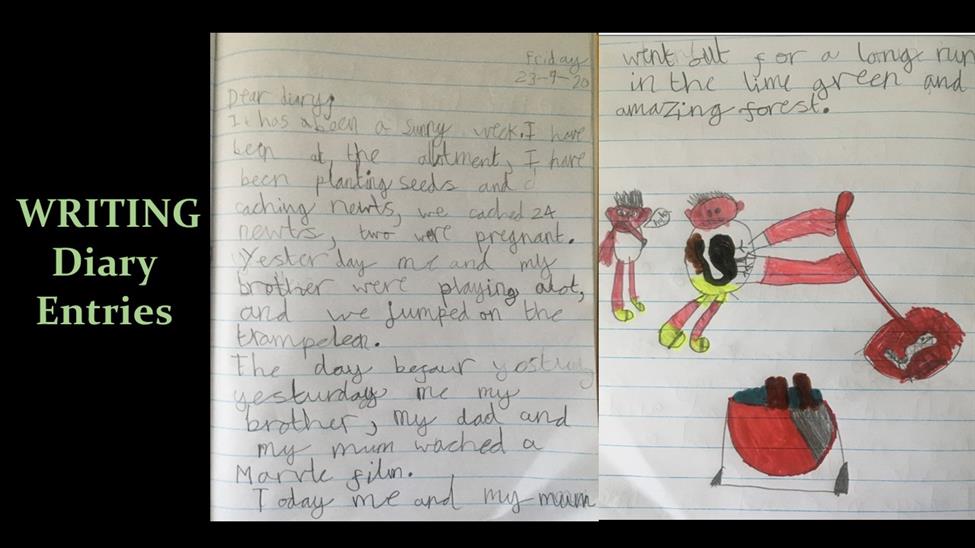 WRITING
Diary
Entries
Friday
23-9-20
Dear diary,
It has a been a sunny week. I have
been at the allotment, I have
been planting seeds and
caching newts, we cached 24
newts, two were pregnant.
Yesterday me and my
brother were playing alot,
and we jumped on the
trampelen.
The day befaur yestur
yesturday me my
brother, my dad and
my mum wached a
Marvle film.
Today me and my mum
went out for a long run
in the lime green and
amazing forest.